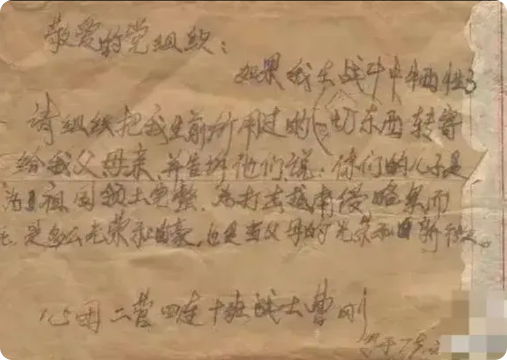 敬爱的党组织:
如果我在战斗中牺牲了
请组织把我生前所用过的一切东西转寄
给我父母亲,并告诉他们说:你们的儿子是
为祖国领土完整,为打击越南侵略军而
是多么光荣和自豪,也是当父母的光荣和
二营四连十班战士曹刚